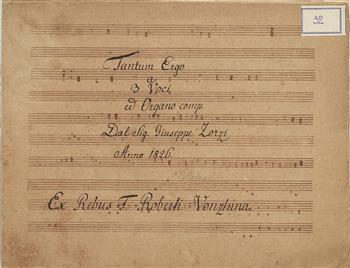 32
Tantum Ergo
a
3 Voci
ed Organo comp.
Dal sig. Giuseppe Zorzi
Anno 1826.
Ex Rebus F. Roberti Vonzhina